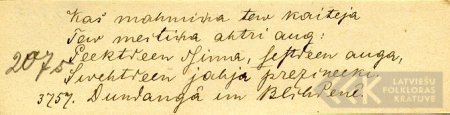 Kas mahmiņa tew kaiteja
Tew meitiņa ahtri aug:
2075 Peektdeen dsima, sestdeen auga,
Swehtdeen jahja prezineeki.
3757. Dundangâ un Blihdenê.
LATVIEŠU
FOLKLORAS
KRĀTUVE